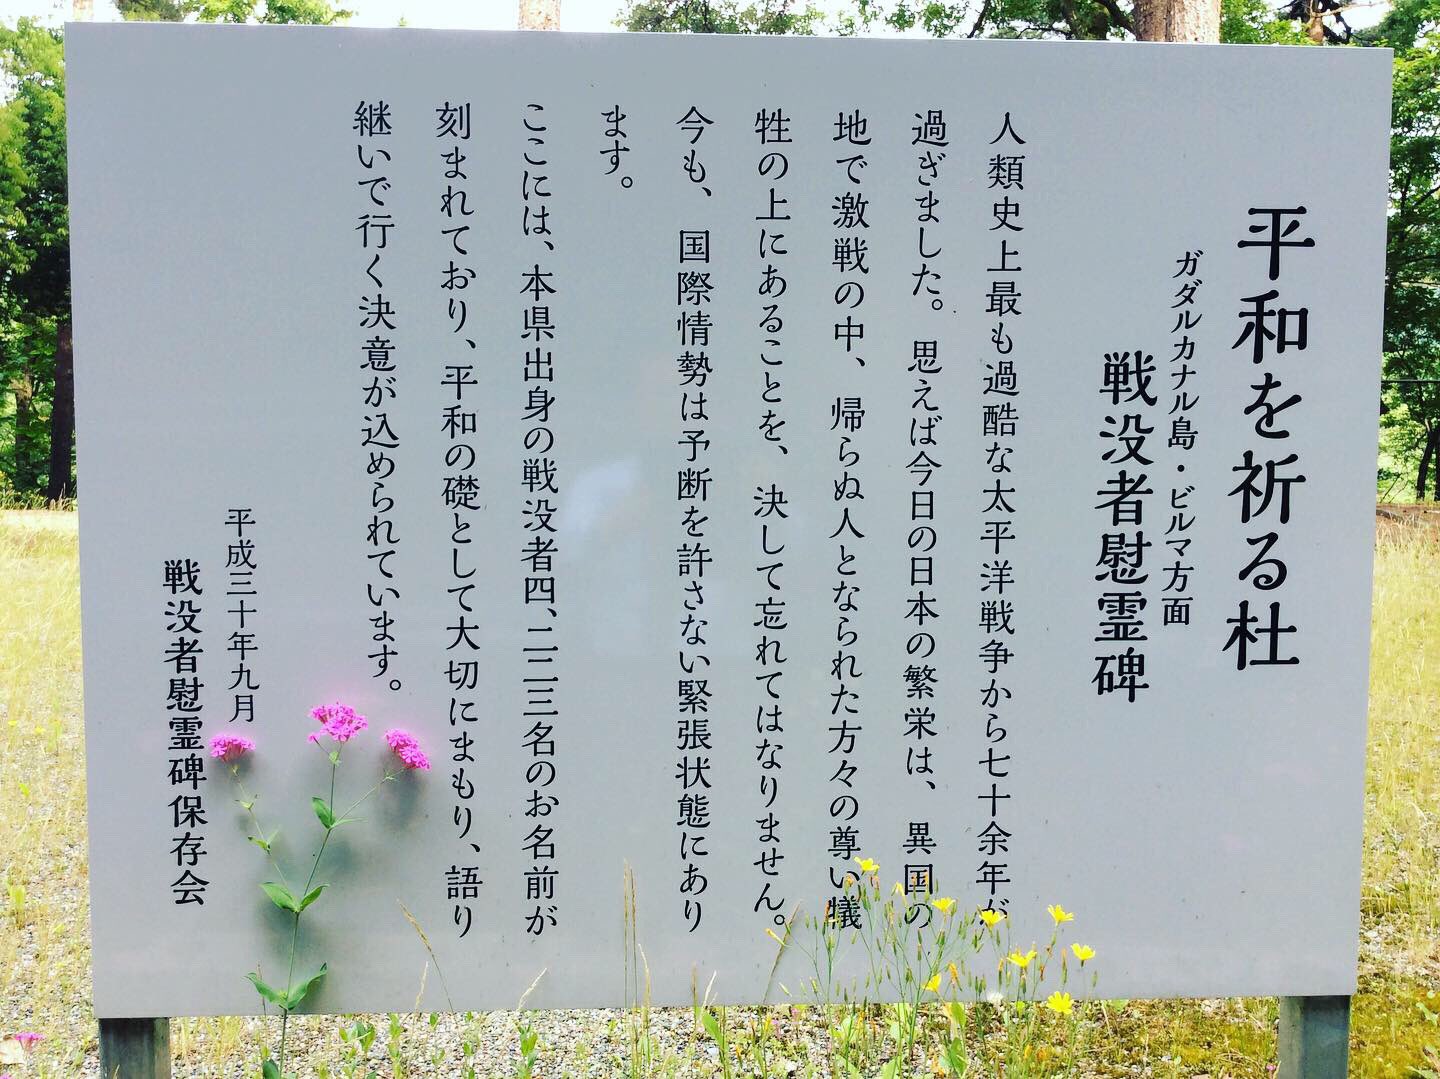 平和を祈る杜
ガダルカナル島・ビルマ方面
戦没者慰霊碑
人類史上最も過酷な太平洋戦争から七十余年が
過ぎました。思えば今日の日本の繁栄は、異国の
地で激戦の中、帰らぬ人となられた方々の尊い犠
牲の上にあることを、決して忘れてはなりません。
今も、国際情勢は予断を許さない緊張状態にあり
ます。
ここには、本県出身の戦没者四、二二三名のお名前が
刻まれており、平和の礎として大切にまもり、語り
継いで行く決意が込められています。
平成三十年九月
戦没者慰霊碑保存会